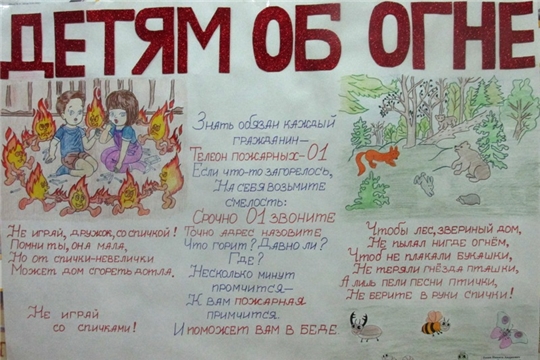 ДЕТЯМ ОБ ОГНЕ
Не играй, дружок, со спичкой!
Помни ты, она мала,
Но от спички-невелички
Может дом сгореть дотла.
Не играй
со спичками!
Знать обязан каждый
гражданин—
Телеон пожарных-01
Если что-то загорелось,
На себя возьмите
смелость:
Срочно 01 звоните
Точно адрес назовите
Что горит? Давно ли?
Где?
Несколько минут
промчится—
К вам пожарная
примчится.
И поможет вам в беде
Чтобы лес, звериный дом,
Не пылал нигде огнём,
Чтоб не плакали букашки,
Не теряли гнёзда пташки,
А лишь пели песни птички,
Не берите в руки спички!